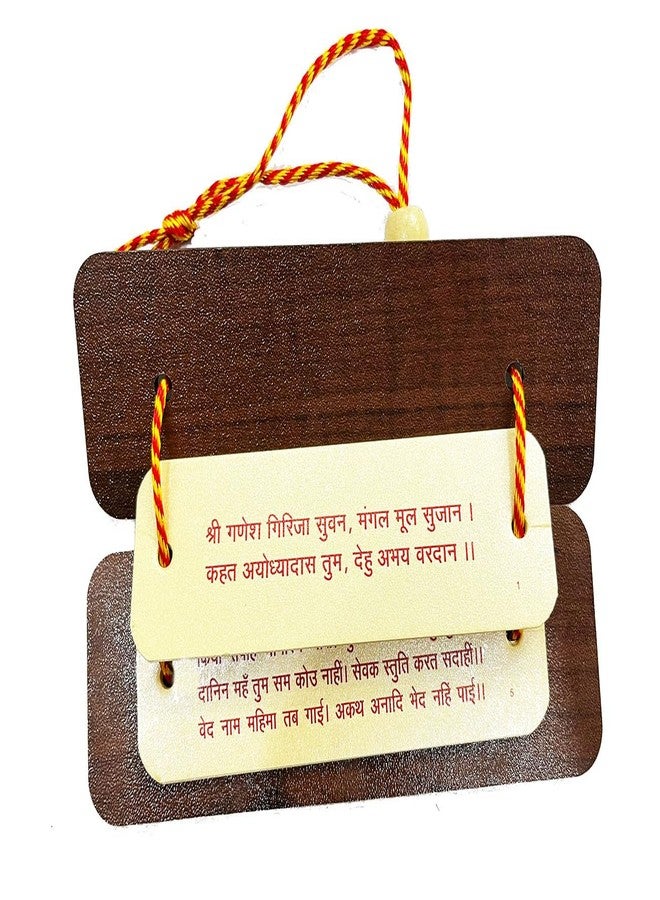 श्री गणेश गिरिजा सुवन, मंगल मूल सुजान ।
कहत अयोध्यादास तुम, देहु अभय वरदान ।।
1
दानिन महँ तुम सम कोउ नाहीं। सेवक स्तुति करत सदाहीं।।
वेद नाम महिमा तब गाई। अकथ अनादि भेद नहिं पाई।।
5